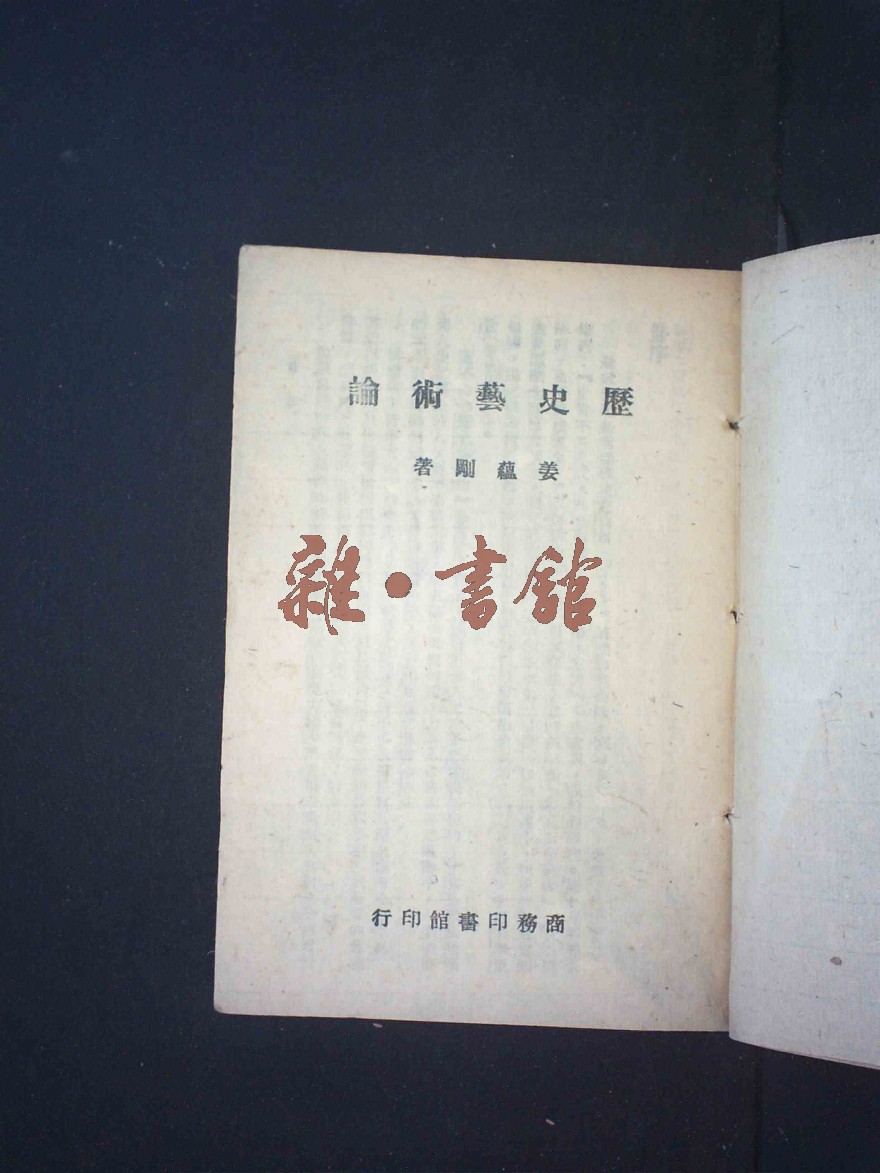 歷史藝術論
姜蘊剛著
雜·書館
商務印書館印行